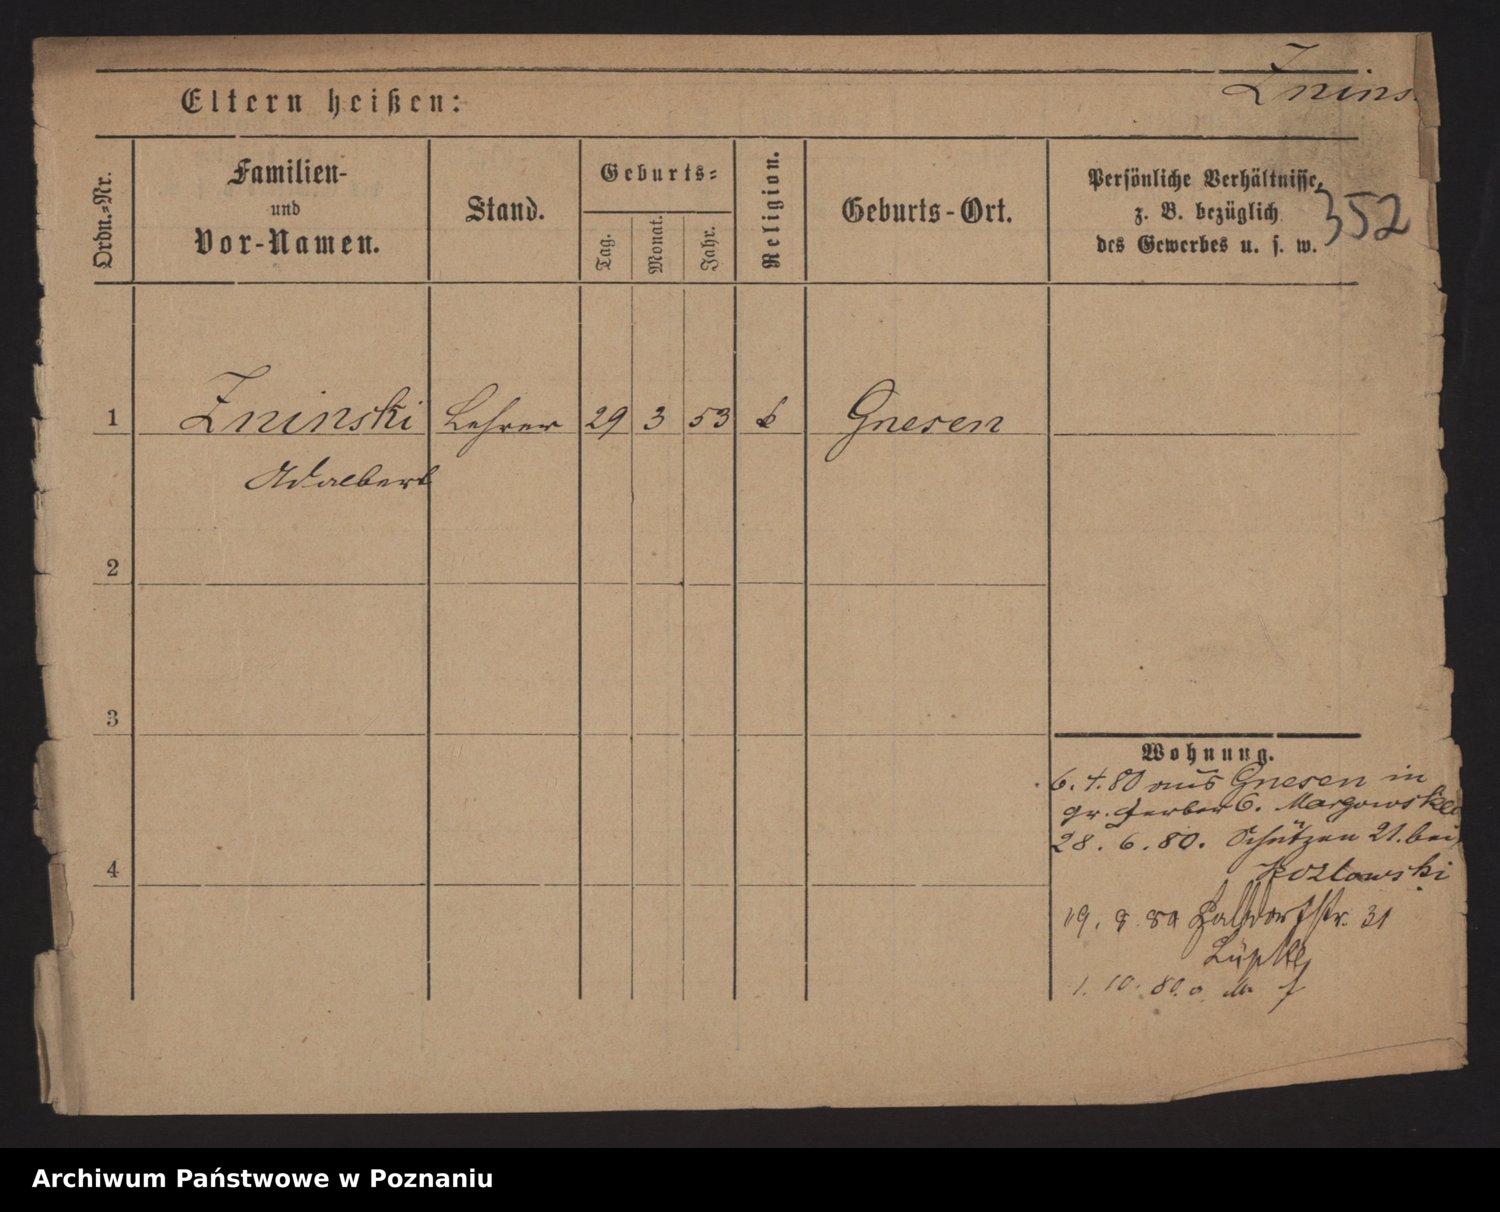 Znins
Eltern heißen:
Ordn.-Nr.
Familien-
und
Vor-Namen.
Stand.
Geburts-
Tag.
Monat.
Jahr.
Religion.
Geburts-Ort.
Persönliche Verhältnisse,
z. B. bezüglich
des Gewerbes u. s. w.
352
1 Zninski Lehrer 29 3 53 k Gnesen
Adalbert
2
3
4
Wohnung.
6. 4. 80 aus Gnesen in
gr. Gerber 6. Margowski
28. 6. 80. Schützen 21. bei
Kozlowski
19. 8. 80 31
1. 10. 80.
Archiwum Państwowe w Poznaniu